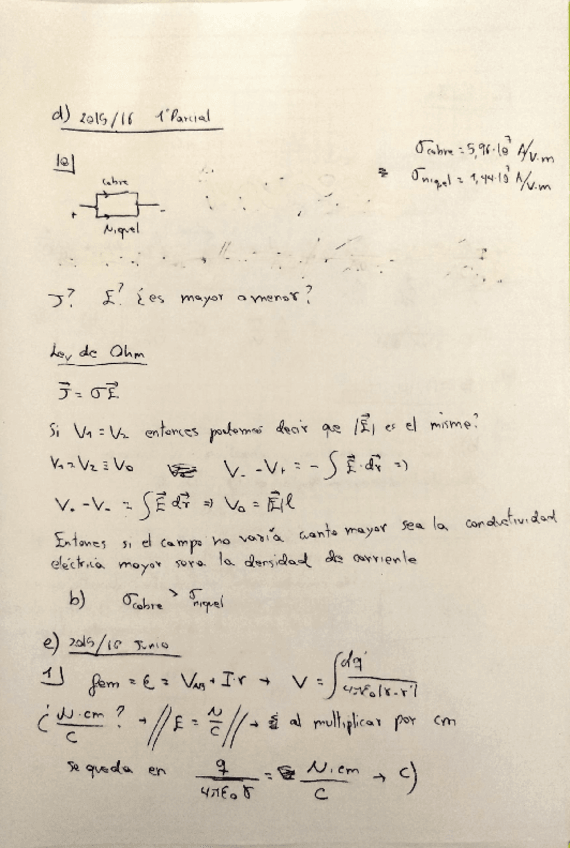 d) 2015/16 1º Parcial
10
σcobre = 5,96·10⁷ A/V·m
σniquel = 1,44·10⁷ A/V·m
cobre
+ -
Niquel
J? E? ¿es mayor o menor?
Ley de Ohm
J⃗ = σE⃗
Si V₁ = V₂ entonces podemos decir que |E⃗| es el mismo?
V₁ = V₂ ≡ V₀ V₋ - V₊ = -∫ E⃗·dr⃗ ⇒
V₊ - V₋ = ∫E⃗ dr⃗ ⇒ V₀ = |E⃗|l
Entonces si el campo no varía cuanto mayor sea la conductividad
eléctrica mayor sera la densidad de corriente
b) σcobre > σniquel
e) 2015/16 Junio
1 fem = ε = VAB + I·r → V = ∫ dq' / 4πε₀|r-r'|
¿ N·cm / C ? → // E = N/C // → al multiplicar por cm
se queda en q / 4πε₀r = N·cm / C → c)